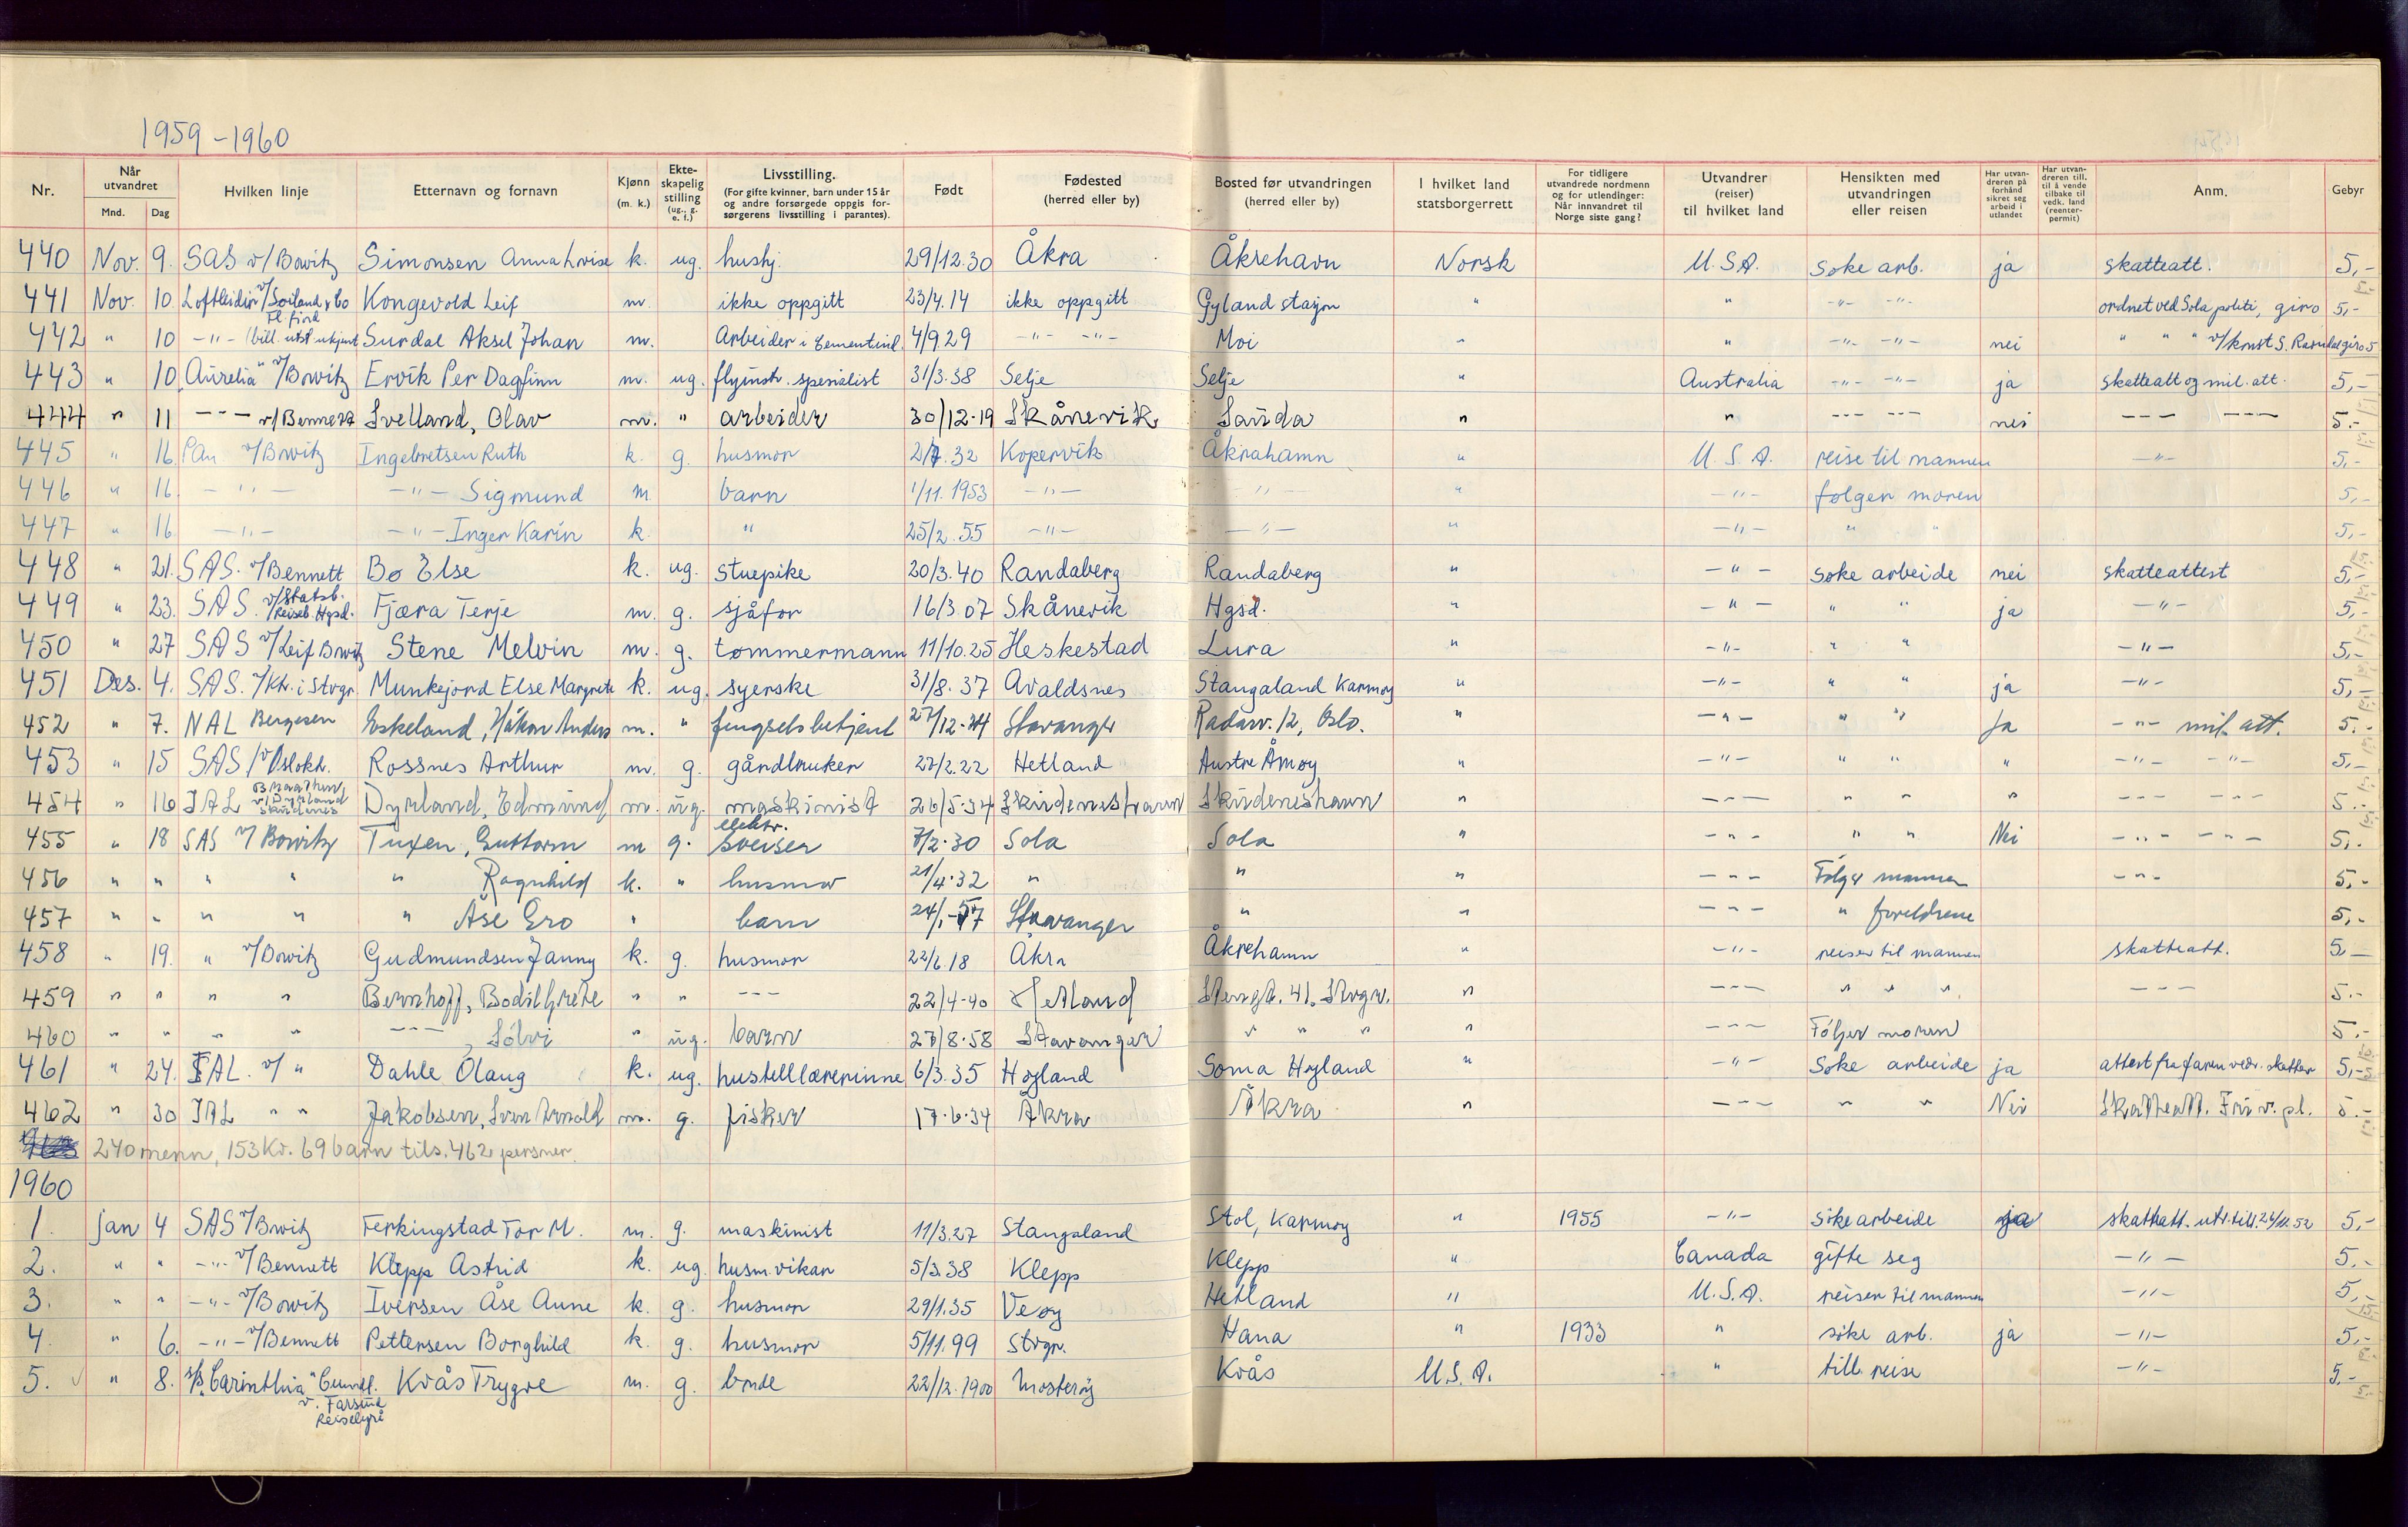 1959-1960
Nr. Når utvandret Mnd. Dag Hvilken linje Etternavn og fornavn Kjønn (m. k.) Ekteskapelig stilling (ug., g. e. f.) Livsstilling. (For gifte kvinner, barn under 15 år og andre forsørgede oppgis forsørgerens livsstilling i parantes). Født Fødested (herred eller by) Bosted før utvandringen (herred eller by) I hvilket land statsborgerrett For tidligere utvandrede nordmenn og for utlendinger: Når innvandret til Norge siste gang? Utvandrer (reiser) til hvilket land Hensikten med utvandringen eller reisen Har utvandreren på forhånd sikret seg arbeid i utlandet Har utvandreren till. til å vende tilbake til vedk. land (reenterpermit) Anm. Gebyr
440 Nov. 9. SAS v/Bowitz Simonsen Anna Lovise k. ug. hushj. 29/12.30 Åkra Åkrehavn Norsk U.S.A. Søke arb. ja skatteatt. 5,-
441 Nov. 10. Loftleidir v/Soiland & Co Fl. fjord Kongevold Leif m. ikke oppgitt 23/4.14 ikke oppgitt Gyland stasjon " " -"- -"- ordnet ved Sola politi, giro 5,-
442 " 10 -"- (bill. utst ukjent Surdal Aksel Johan m. Arbeider i sementind. 4/9.29 -"- -"- Moi " " -"- -"- nei " " " v/konst S. giro 5
443 " 10 "Aurelia" v/Bowitz Ervik Per Dagfinn m. ug. flyinstr. spesialist 31/3.38 Selje Selje " Australia -"- -"- ja skatteatt og mil. att. 5,-
444 " 11 --- v/Bennett Svelland, Olav m. " arbeider 30/12-19 Skånevik Sauda " " --- --- nei --- --- 5.-
445 " 16. PAn v/Bowitz Ingebretsen Ruth k. g. husmor 2/7.32 Kopervik Åkrahamn " U.S.A. reise til mannen -"- 5,-
446 " 16. -"- -"- Sigmund m. barn 1/11.1953 -"- -"- " -"- følger moren 5,-
447 " 16 -"- -"- Inger Karin k. " 25/2.55 -"- -"- " -"- " " 5,-
448 " 21. SAS. v/Bennett Bø Else k. ug. stuepike 20/3.40 Randaberg Randaberg " -"- søke arbeide nei skatteattest 5,-
449 " 23. SAS. v/Statsb. Reiseb. Hgsd. Fjæra Terje m. g. sjåfør 16/3.07 Skånevik Hgsd. " -"- " " ja -"- 5,-
450 " 27 SAS v/Leif Bowitz Stene Melvin m. g. tømmermann 11/10.25 Heskestad Lura " -"- " " -"- 5,-
451 Des. 4. SAS. v/Kt. i Stvgr. Munkejord Else Margrete k. ug. syerske 31/8.37 Avaldsnes Stangaland Karmøy " -"- " " ja -"- 5,-
452 " 7. NAL Bergesen Eskeland, Håkon Anders m. " fengselsbetjent 27/12-24 Stavanger Radarv. 12, Oslo. " -"- " " Ja -"- mil. att. 5.-
453 " 15 SAS v/Oslokt. Rossnes Arthur m. g. gårdbruker 27/2.22 Hetland Austre Åmøy " -"- " " " -"- -"- 5,-
454 " 16 IAL Braathen v/Dyrland Skudenes Dyrland, Edmund m. ug. maskinist 26/5-34 Skudeneshavn Skudeneshavn " --- " " " --- --- 5.-
455 " 18 SAS v/Bowitz Tuxen, Guttorm m g. elektr. sveiser 7/2-30 Sola Sola " -"- " " Nei -"- -"- 5,-
456 " " " " " Ragnhild k. " husmor 21/4-32 " " " -"- Følger mannen -"- 5,-
457 " " " " " Åse Gro " barn 24/1-57 Stavanger " " -"- " foreldrene 5,-
458 " 19. " v/Bowitz Gudmundsen Janny k. g. husmor 22/6.18 Åkra Åkrehamn " -"- reiser til mannen skatteatt. 5,-
459 " " " " Bernhoff, Bodil Grete " " --- 22/4-40 Hetland Stengt. 41. Stvgr. " --- " " " --- 5.-
460 " " " " ---, Sølvi " ug. barn 27/8-58 Stavanger " " " " --- Følger moren 5.-
461 " 24. IAL. v/ " Dahle Olaug k. ug. hustellærerinne 6/3.35 Høyland Soma Høyland " -"- Søke arbeide ja attest fra faren vedr. skatter 5,-
462 " 30 IAL " " Jakobsen, Sven Arnold m. g. fisker 17-6-34 Åkra Åkra " --- " " Nei Skatteatt. Fri v.pl. 5.-
240 menn, 153 Kv. 69 barn tils. 462 personer.
1960
1. jan 4 SAS v/Bowitz Ferkingstad Tor M. m. g. maskinist 11/3.27 Stangaland Stol, Karmøy " 1955 -"- søke arbeide ja skatteatt. utr. till. 24/11.52 5,-
2. " " -"- v/Bennett Klepp Astrid k. ug. husm.vikar 5/3.38 Klepp Klepp " Canada gifte seg -"- 5,-
3. " " -"- v/Bowitz Iversen Åse Aune k. g. husmor 29/1.35 Veøy Hetland " U.S.A. reiser til mannen -"- 5,-
4. " 6. -"- v/Bennett Pettersen Borghild k. g. husmor 5/11.99 Stvgr. Hana " 1933 " søke arb. ja -"- 5,-
5. " 8. s/s "Carinthia" Cunard. v. Farsund Reisebyrå Kvås Trygve m. g. bonde 22/12.1900 Mosterøy Kvås U.S.A. " till. reise -"- 5,-